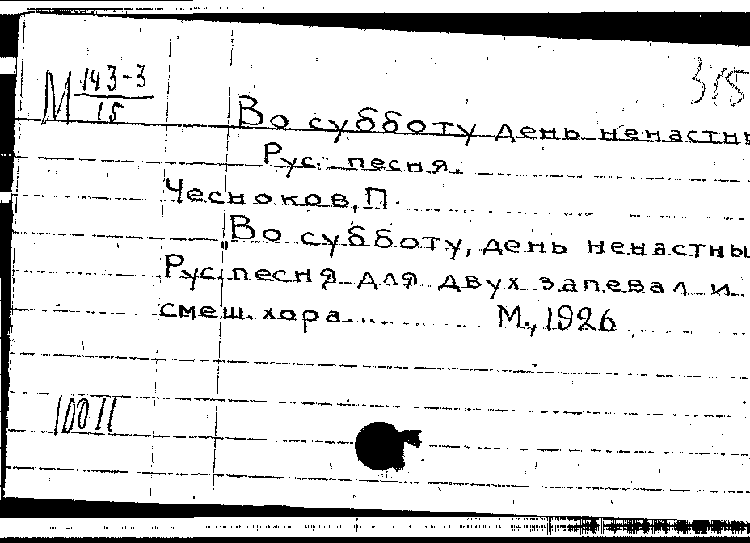 315
М 143-3
15
Во субботу день ненастны
Рус. песня.
Чесноков, П.
"Во субботу, день ненастны
Рус. песня для двух запевал и
смеш. хора... М., 1926
10011